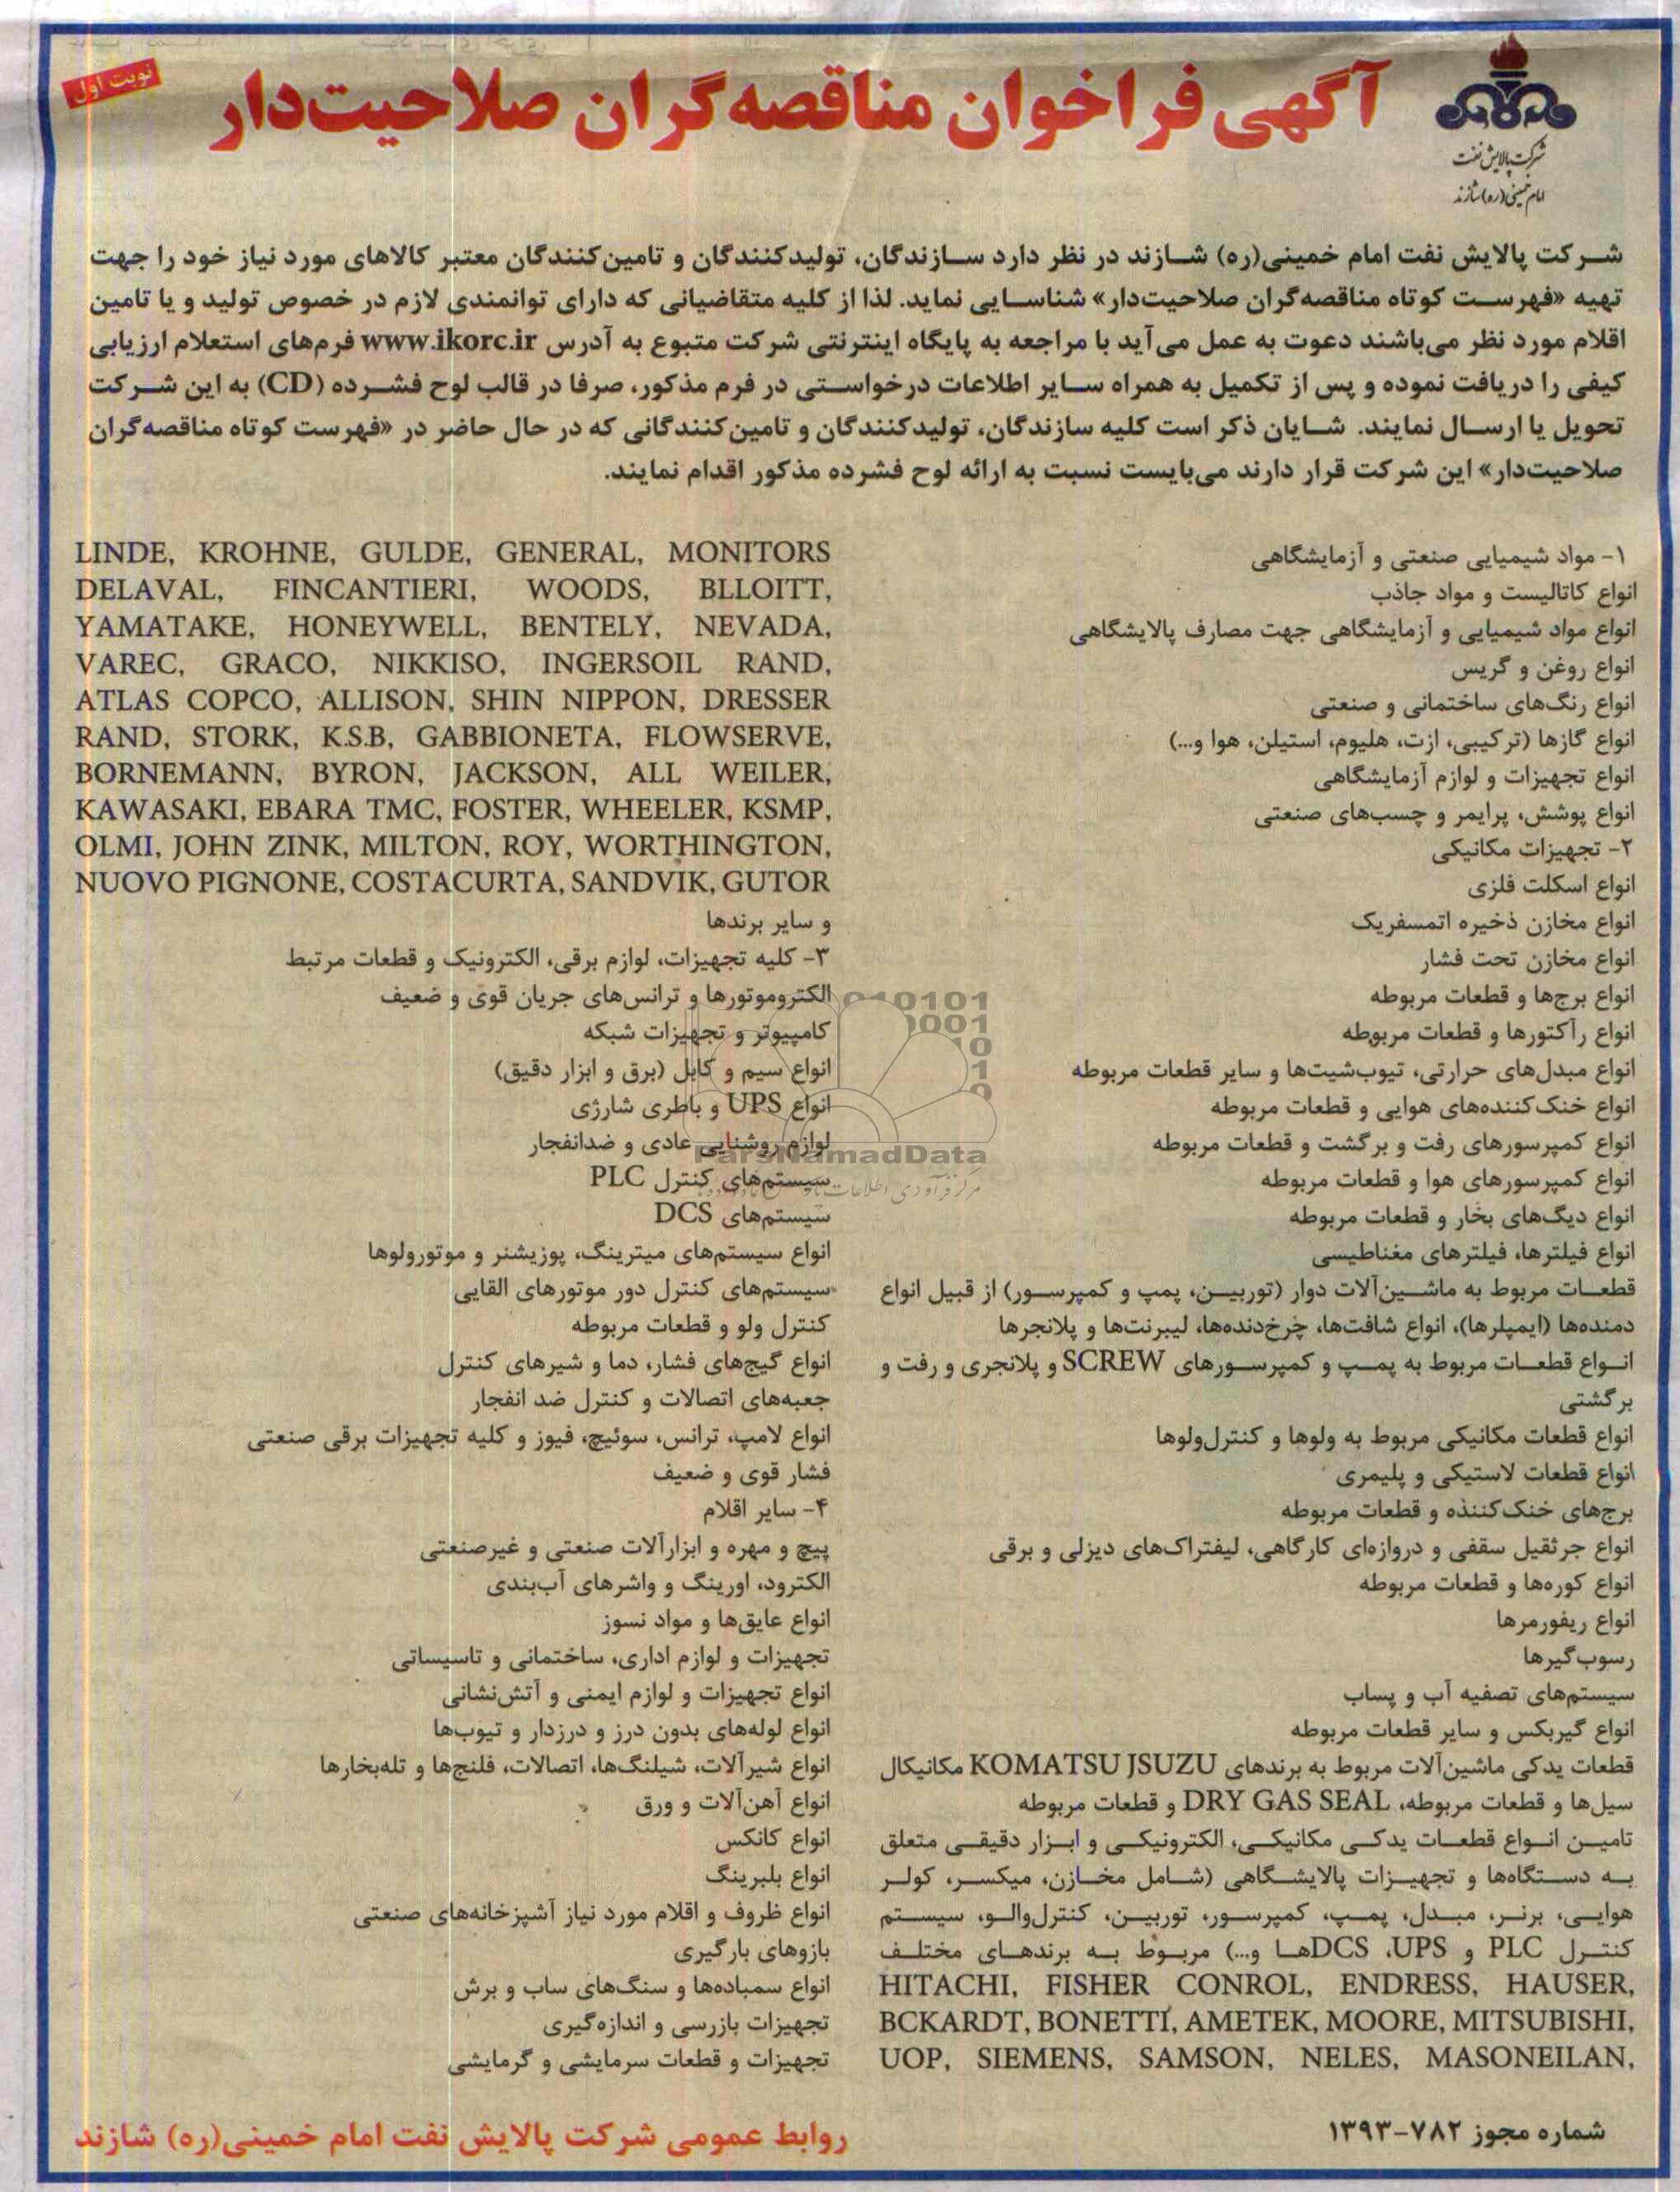 نوبت اول
آگهی فراخوان مناقصه‌گران صلاحیت‌دار
شرکت پالایش نفت
امام خمینی(ره) شازند
شرکت پالایش نفت امام خمینی(ره) شازند در نظر دارد سازندگان، تولیدکنندگان و تامین‌کنندگان معتبر کالاهای مورد نیاز خود را جهت
تهیه «فهرست کوتاه مناقصه‌گران صلاحیت‌دار» شناسایی نماید. لذا از کلیه متقاضیانی که دارای توانمندی لازم در خصوص تولید و یا تامین
اقلام مورد نظر می‌باشند دعوت به عمل می‌آید با مراجعه به پایگاه اینترنتی شرکت متبوع به آدرس www.ikorc.ir فرم‌های استعلام ارزیابی
کیفی را دریافت نموده و پس از تکمیل به همراه سایر اطلاعات درخواستی در فرم مذکور، صرفا در قالب لوح فشرده (CD) به این شرکت
تحویل یا ارسال نمایند. شایان ذکر است کلیه سازندگان، تولیدکنندگان و تامین‌کنندگانی که در حال حاضر در «فهرست کوتاه مناقصه‌گران
صلاحیت‌دار» این شرکت قرار دارند می‌بایست نسبت به ارائه لوح فشرده مذکور اقدام نمایند.
۱- مواد شیمیایی صنعتی و آزمایشگاهی
انواع کاتالیست و مواد جاذب
انواع مواد شیمیایی و آزمایشگاهی جهت مصارف پالایشگاهی
انواع روغن و گریس
انواع رنگ‌های ساختمانی و صنعتی
انواع گازها (ترکیبی، ازت، هلیوم، استیلن، هوا و...)
انواع تجهیزات و لوازم آزمایشگاهی
انواع پوشش، پرایمر و چسب‌های صنعتی
۲- تجهیزات مکانیکی
انواع اسکلت فلزی
انواع مخازن ذخیره اتمسفریک
انواع مخازن تحت فشار
انواع برج‌ها و قطعات مربوطه
انواع رآکتورها و قطعات مربوطه
انواع مبدل‌های حرارتی، تیوب‌شیت‌ها و سایر قطعات مربوطه
انواع خنک‌کننده‌های هوایی و قطعات مربوطه
انواع کمپرسورهای رفت و برگشت و قطعات مربوطه
انواع کمپرسورهای هوا و قطعات مربوطه
انواع دیگ‌های بخار و قطعات مربوطه
انواع فیلترها، فیلترهای مغناطیسی
قطعات مربوط به ماشین‌آلات دوار (توربین، پمپ و کمپرسور) از قبیل انواع
دمنده‌ها (ایمپلرها)، انواع شافت‌ها، چرخ‌دنده‌ها، لیبرنت‌ها و پلانجرها
انواع قطعات مربوط به پمپ و کمپرسورهای SCREW و پلانجری و رفت و
برگشتی
انواع قطعات مکانیکی مربوط به ولوها و کنترل‌ولوها
انواع قطعات لاستیکی و پلیمری
برج‌های خنک‌کننده و قطعات مربوطه
انواع جرثقیل سقفی و دروازه‌ای کارگاهی، لیفتراک‌های دیزلی و برقی
انواع کوره‌ها و قطعات مربوطه
انواع ریفورمرها
رسوب‌گیرها
سیستم‌های تصفیه آب و پساب
انواع گیربکس و سایر قطعات مربوطه
قطعات یدکی ماشین‌آلات مربوط به برندهای KOMATSU JSUZU مکانیکال
سیل‌ها و قطعات مربوطه، DRY GAS SEAL و قطعات مربوطه
تامین انواع قطعات یدکی مکانیکی، الکترونیکی و ابزار دقیقی متعلق
به دستگاه‌ها و تجهیزات پالایشگاهی (شامل مخازن، میکسر، کولر
هوایی، برنر، مبدل، پمپ، کمپرسور، توربین، کنترل‌والو، سیستم
کنترل PLC و UPS، DCSها و...) مربوط به برندهای مختلف
HITACHI, FISHER CONROL, ENDRESS, HAUSER,
BCKARDT, BONETTI, AMETEK, MOORE, MITSUBISHI,
UOP, SIEMENS, SAMSON, NELES, MASONEILAN,
LINDE, KROHNE, GULDE, GENERAL, MONITORS
DELAVAL, FINCANTIERI, WOODS, BLLOITT,
YAMATAKE, HONEYWELL, BENTELY, NEVADA,
VAREC, GRACO, NIKKISO, INGERSOIL RAND,
ATLAS COPCO, ALLISON, SHIN NIPPON, DRESSER
RAND, STORK, K.S.B, GABBIONETA, FLOWSERVE,
BORNEMANN, BYRON, JACKSON, ALL WEILER,
KAWASAKI, EBARA TMC, FOSTER, WHEELER, KSMP,
OLMI, JOHN ZINK, MILTON, ROY, WORTHINGTON,
NUOVO PIGNONE, COSTACURTA, SANDVIK, GUTOR
و سایر برندها
۳- کلیه تجهیزات، لوازم برقی، الکترونیک و قطعات مرتبط
الکتروموتورها و ترانس‌های جریان قوی و ضعیف
کامپیوتر و تجهیزات شبکه
انواع سیم و کابل (برق و ابزار دقیق)
انواع UPS و باطری شارژی
لوازم روشنایی عادی و ضدانفجار
سیستم‌های کنترل PLC
سیستم‌های DCS
انواع سیستم‌های میترینگ، پوزیشنر و موتورولوها
سیستم‌های کنترل دور موتورهای القایی
کنترل ولو و قطعات مربوطه
انواع گیج‌های فشار، دما و شیرهای کنترل
جعبه‌های اتصالات و کنترل ضد انفجار
انواع لامپ، ترانس، سوئیچ، فیوز و کلیه تجهیزات برقی صنعتی
فشار قوی و ضعیف
۴- سایر اقلام
پیچ و مهره و ابزارآلات صنعتی و غیرصنعتی
الکترود، اورینگ و واشرهای آب‌بندی
انواع عایق‌ها و مواد نسوز
تجهیزات و لوازم اداری، ساختمانی و تاسیساتی
انواع تجهیزات و لوازم ایمنی و آتش‌نشانی
انواع لوله‌های بدون درز و درزدار و تیوب‌ها
انواع شیرآلات، شیلنگ‌ها، اتصالات، فلنج‌ها و تله‌بخارها
انواع آهن‌آلات و ورق
انواع کانکس
انواع بلبرینگ
انواع ظروف و اقلام مورد نیاز آشپزخانه‌های صنعتی
بازوهای بارگیری
انواع سمباده‌ها و سنگ‌های ساب و برش
تجهیزات بازرسی و اندازه‌گیری
تجهیزات و قطعات سرمایشی و گرمایشی
ParsNamadData
شماره مجوز ۷۸۲-۱۳۹۳
روابط عمومی شرکت پالایش نفت امام خمینی(ره) شازند